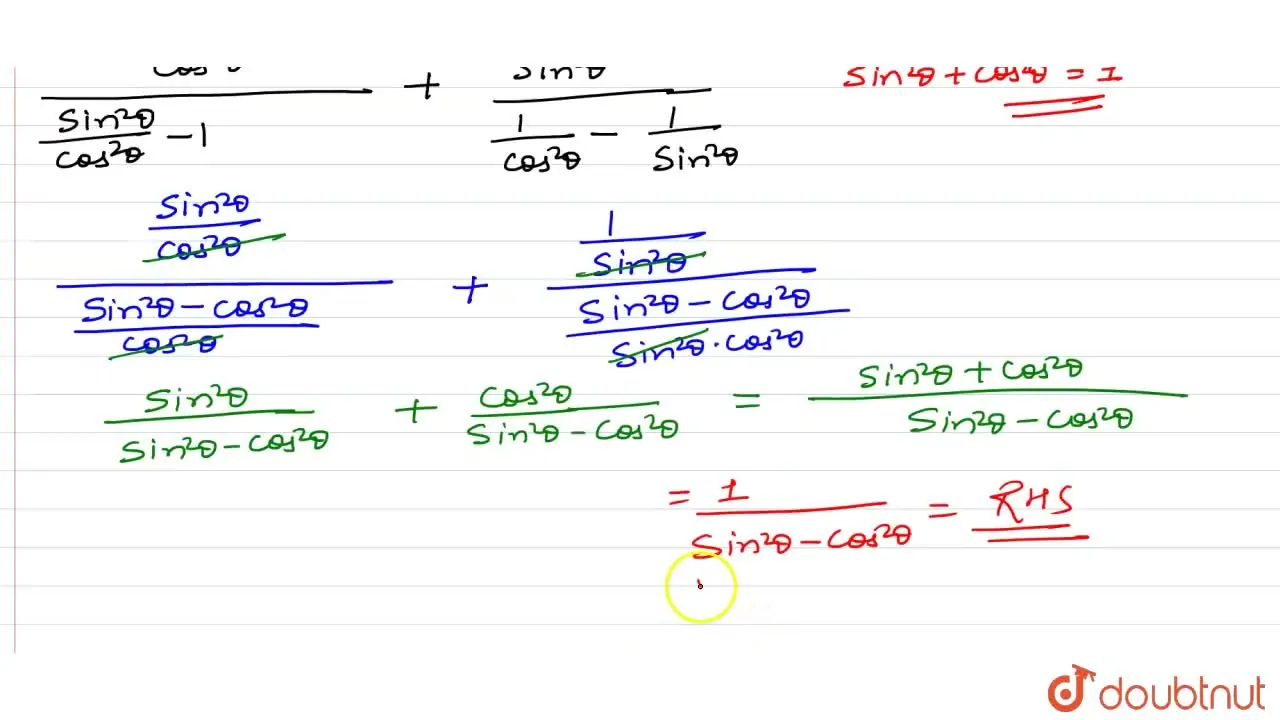 cos²θ + sin²θ sin²θ + cos²θ = 1
sin²θ/cos²θ - 1 1/cos²θ - 1/sin²θ
sin²θ/cos²θ + 1/sin²θ
sin²θ - cos²θ/cos²θ sin²θ - cos²θ/sin²θ · cos²θ
sin²θ/sin²θ - cos²θ + cos²θ/sin²θ - cos²θ = sin²θ + cos²θ/sin²θ - cos²θ
= 1/sin²θ - cos²θ = RHS
doubtnut